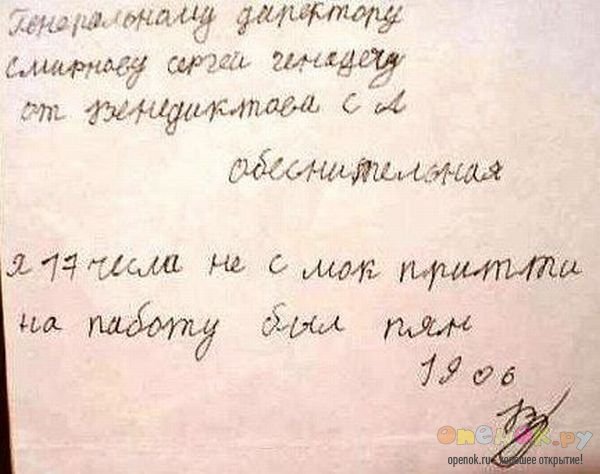 Генеральному директору
Смирнову сергей генадечу
от Венедиктова С А
обеснительная
я 17 числа не с мок притти
на работу был пян
19 06
опенок.ру
openok.ru - хорошее открытие!